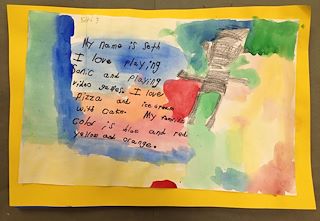 My name is Seth
I love playing
Sonic and playing
video games. I love
pizza and ice cream
with cake. My favorite
color is blue and red
yellow and orange.